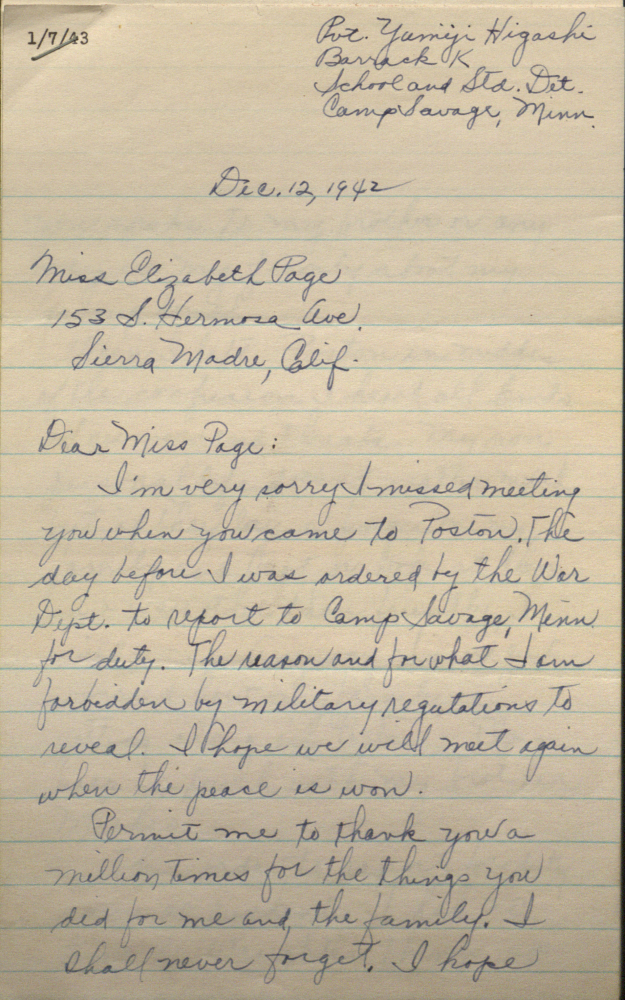 1/7/43
Pvt. Yumiji Higashi
Barrack K
School and Std. Det.
Camp Savage, Minn.
Dec. 12, 1942
Miss Elizabeth Page
153 S. Hermosa Ave.
Sierra Madre, Calif.
Dear Miss Page:
I'm very sorry I missed meeting
you when you came to Poston. The
day before I was ordered by the War
Dept. to report to Camp Savage, Minn.
for duty. The reason and for what I am
forbidden by military regulations to
reveal. I hope we will meet again
when the peace is won.
Permit me to thank you a
million times for the things you
did for me and the family. I
shall never forget. I hope